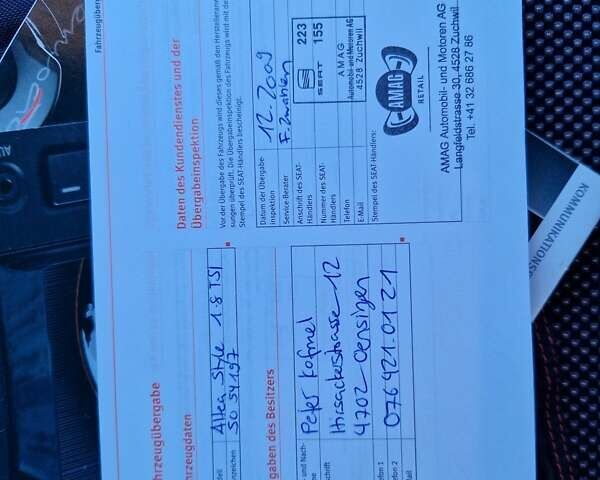 Fahrzeugübergabe
Fahrzeugdaten
Altea Style 1.8 TSI
SO 54197
Angaben des Besitzers
Peter Kofmel
12
4702 Oensingen
076 421 01 21
Fahrzeugüber
Daten des Kundendienstes und der
Übergabeinspektion
Vor der Übergabe des Fahrzeugs wird dieses gemäß den Herstelleranw
sungen überprüft. Die Übergabeinspektion des Fahrzeugs wird mit de
Stempel des SEAT-Händlers bescheinigt.
Datum der Übergabe-
Inspektion
12.2009
Service-Berater
F. Zwahlen
Anschrift des SEAT-
Händlers
Nummer des SEAT-
Händlers
Telefon
E-Mail
223
155
SEAT
AMAG
Automobil- und Motoren AG
4528 Zuchwil
Stempel des SEAT-Händlers:
AMAG
RETAIL
AMAG Automobil- und Motoren AG
Langfeldstrasse 30, 4528 Zuchwil
Tel. +41 32 686 27 86
KOMMUNIKATIONS